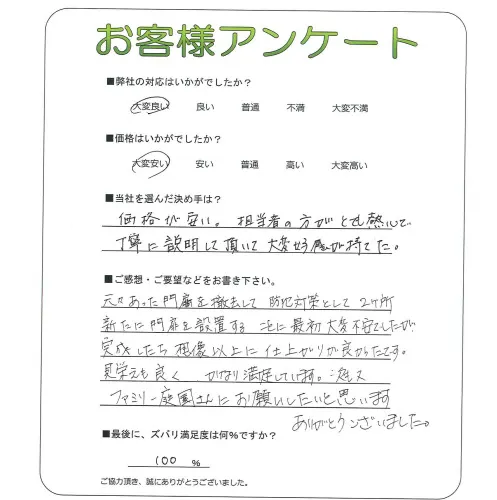 お客様アンケート
■弊社の対応はいかがでしたか？
大変良い 良い 普通 不満 大変不満
■価格はいかがでしたか？
大変安い 安い 普通 高い 大変高い
■当社を選んだ決め手は？
価格が安い。担当者の方がとても熱心で
丁寧に説明して頂いて大変好感が持てた。
■ご感想・ご要望などをお書き下さい。
元々あった門扉を撤去して 防犯対策として 2ヶ所
新たに門扉を設置する ことに最初大変不安でしたが
完成したら想像以上に仕上がりが良かったです。
見栄えも良く かなり満足しています。
ファミリー庭園さんにお願いしたいと思います
ありがとうございました。
■最後に、ズバリ満足度は何%ですか？
100 %
ご協力頂き、誠にありがとうございました。